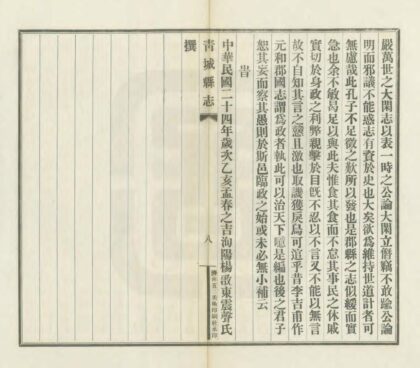 嚴萬世之大閑志以表一時之公論大閑立僭竊不敢踰公論
明而邪議不能惑志有資於史也大矣欲為維持世道計者可
無慮哉此孔子不足徵之歎所以發也是郡縣之志似緩而實
急也余不敏曷足以與此夫惟食其食而不忘其事民之休戚
實切於身政之利弊親擊於目旣不忍以不言又不能以無言
故不自知其言之戇且激也取譏獲戾烏可逭乎昔李吉甫作
元和郡國志謂為政者執此可以治天下噫是編也後之君子
恕其妄而察其愚則於斯邑臨政之始或未必無小補云
旹
中華民國二十四年歲次乙亥孟春之吉洵陽楊啟東震聲氏
青城縣志
八
撰